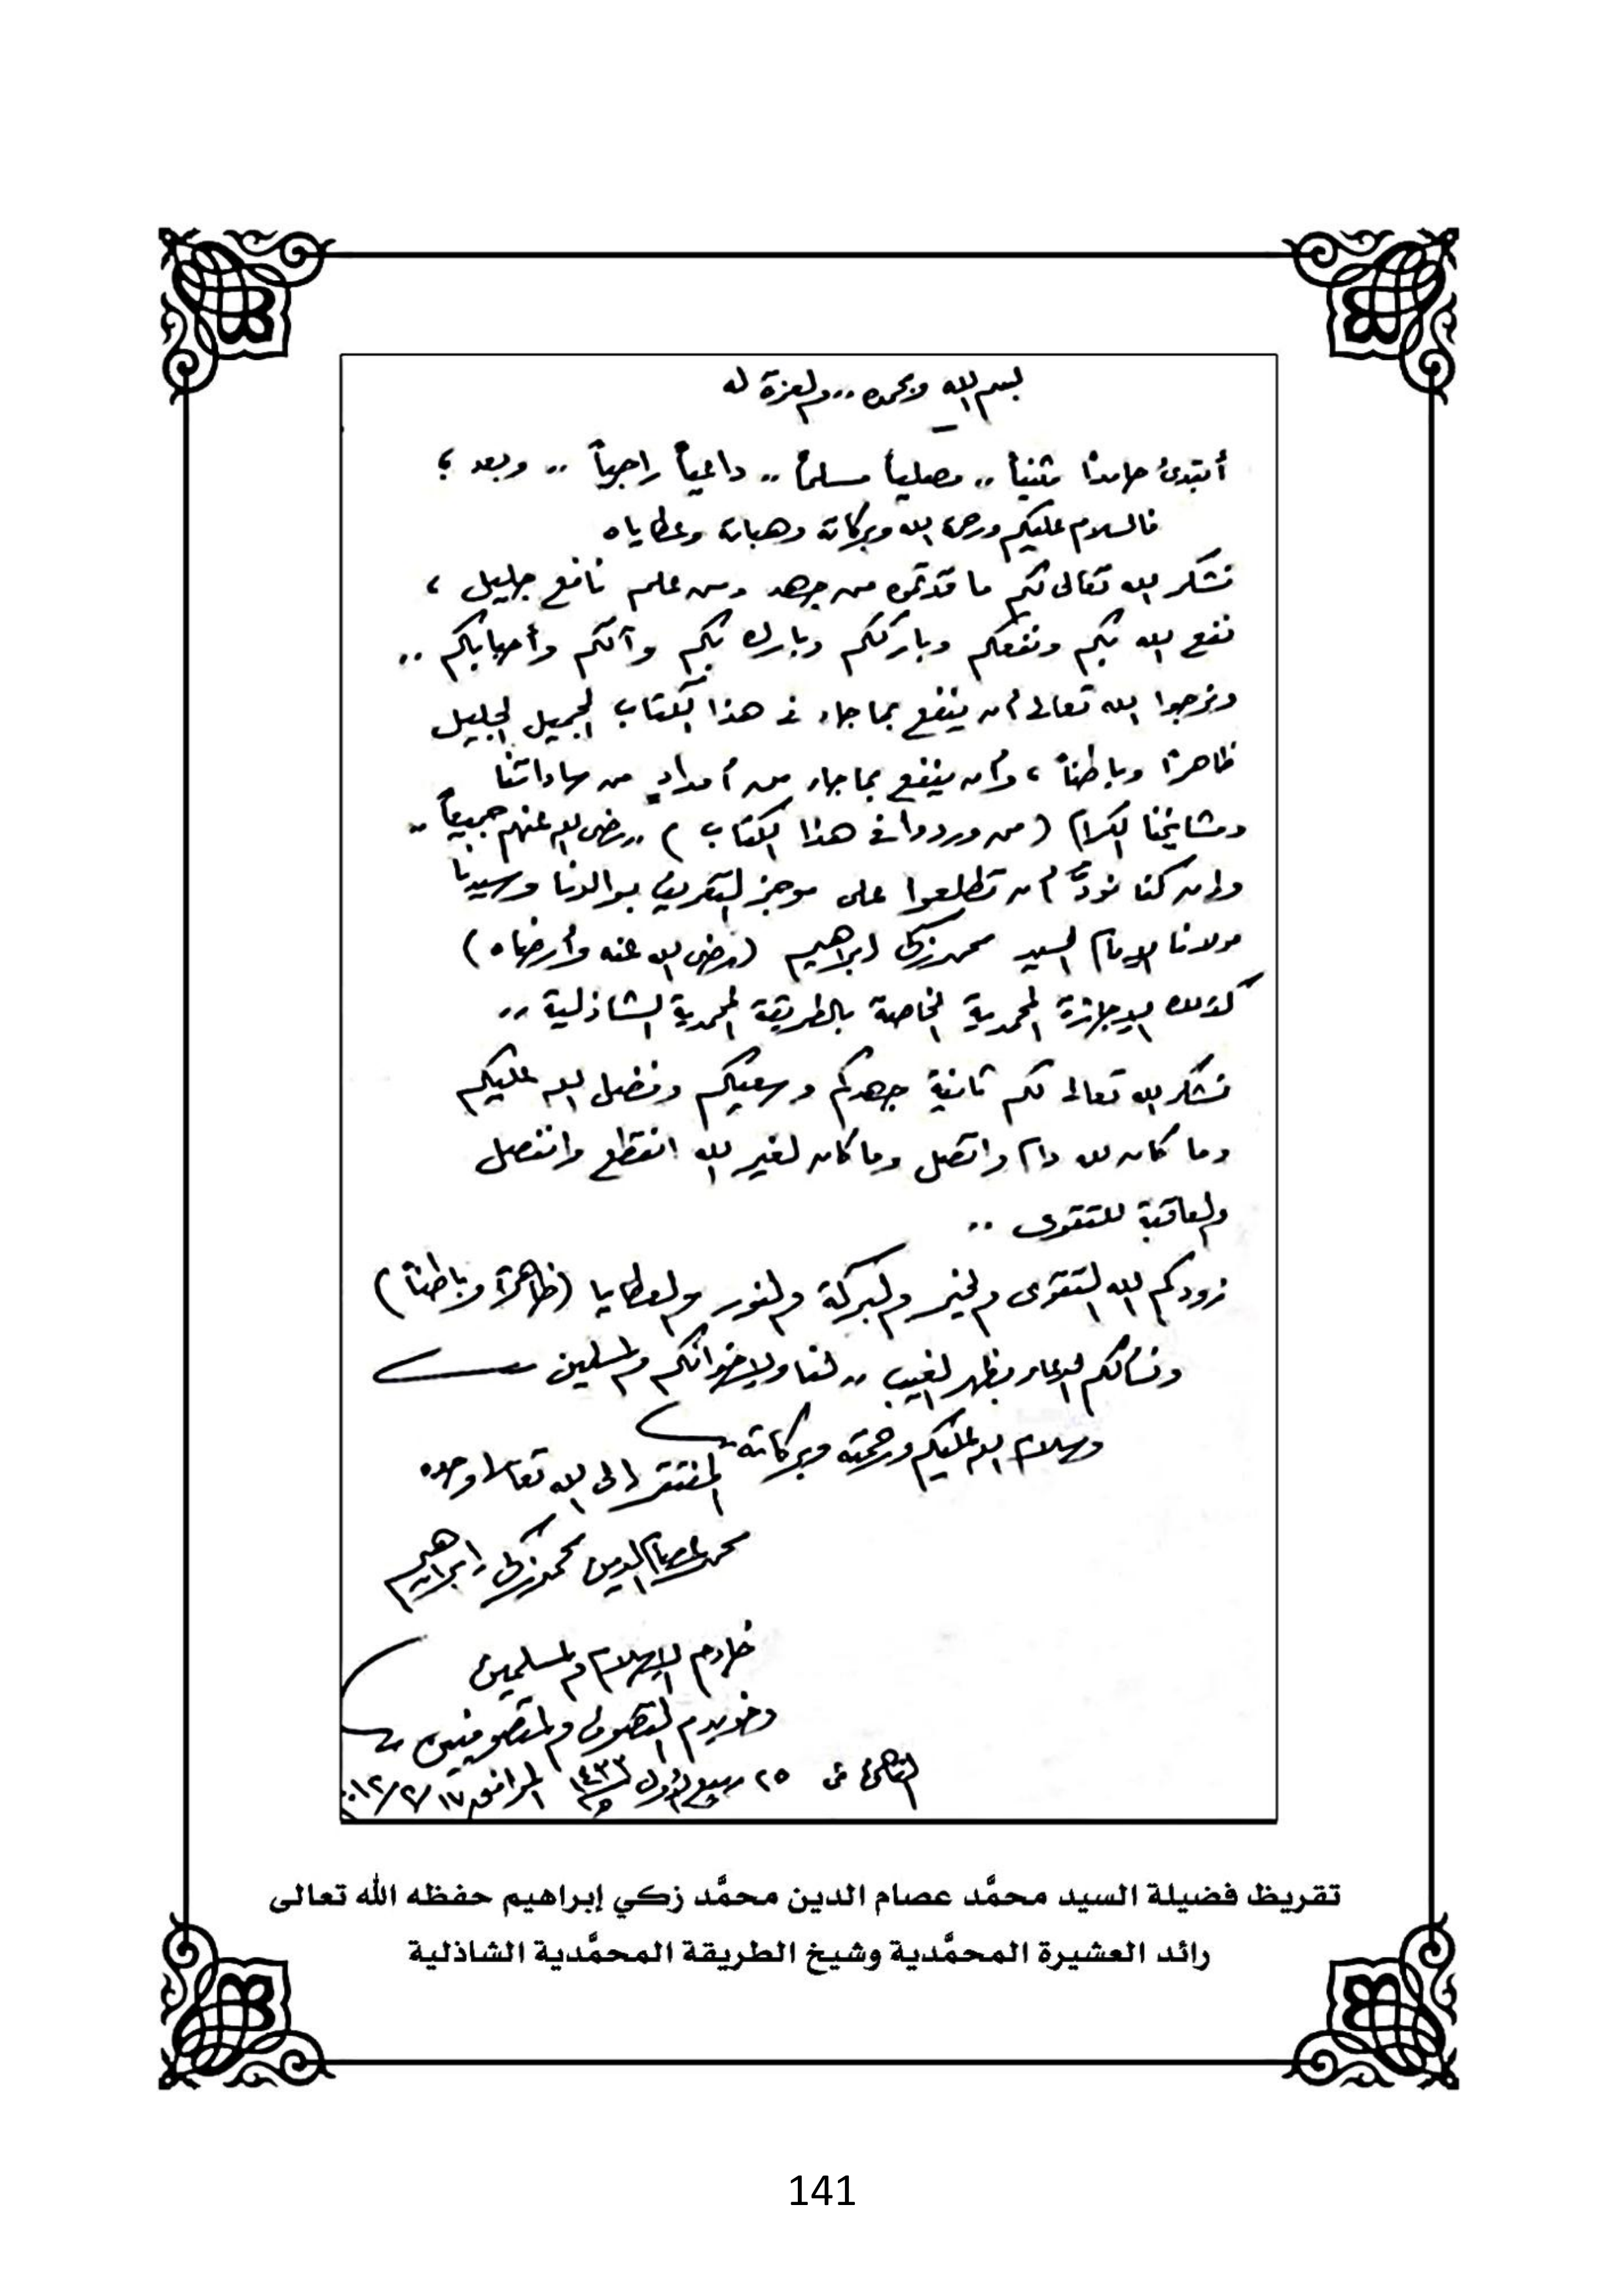 بسم الله وبحمده .. والعزة له
أبتدئ حامداً مثنياً .. مصلياً مسلماً .. داعياً راجياً .. وبعد ؛
فالسلام عليكم ورحمة الله وبركاته وهباته وعطاياه
نشكر الله تعالى لكم ما قدمتموه من جهد ومن علم نافع جليل ،
نفع الله بكم ونفعكم وبارككم وبارك بكم وآلكم وأحبابكم ..
ونرجوا الله تعالى أن ينفع بما جاء في هذا الكتاب الجميل الجليل
ظاهراً وباطناً ، وأن ينفع بما جاء من أمداد من ساداتنا
ومشايخنا الكرام (من وردوا في هذا الكتاب) .. رضى الله عنهم جميعاً ..
وإن كنا نودُّ أن تطلعوا على موجز التعريف بوالدنا وسيدنا
مولانا الإمام السيد محمد زكى إبراهيم (رضى الله عنه وأرضاه)
كذلك الإجازة المحمدية الخاصة بالطريقة المحمدية الشاذلية ..
نشكر الله تعالى لكم ثانية جهدكم وسعيكم وفضل الله عليكم
وما كان لله دام واتصل وما كان لغير الله انقطع وانفصل
والعاقبة للتقوى ..
زودكم الله التقوى والخير والبركة والنور والعطايا (ظاهراً وباطناً)
ونسألكم الدعاء بظهر الغيب .. لنا ولإخوانكم والمسلمين
وسلام الله عليكم ورحمته وبركاته
المفتقر إلى الله تعالى وحده
محمد عصام الدين محمد زكى إبراهيم
خادم الإسلام والمسلمين
وخويدم التصوف والمتصوفين
القاهرة فى ٢٥ ربيع الأول ١٤٣٣ الموافق ١٧/٢/٢٠١٢
تقريظ فضيلة السيد محمَّد عصام الدين محمَّد زكي إبراهيم حفظه الله تعالى
رائد العشيرة المحمَّدية وشيخ الطريقة المحمَّدية الشاذلية
141